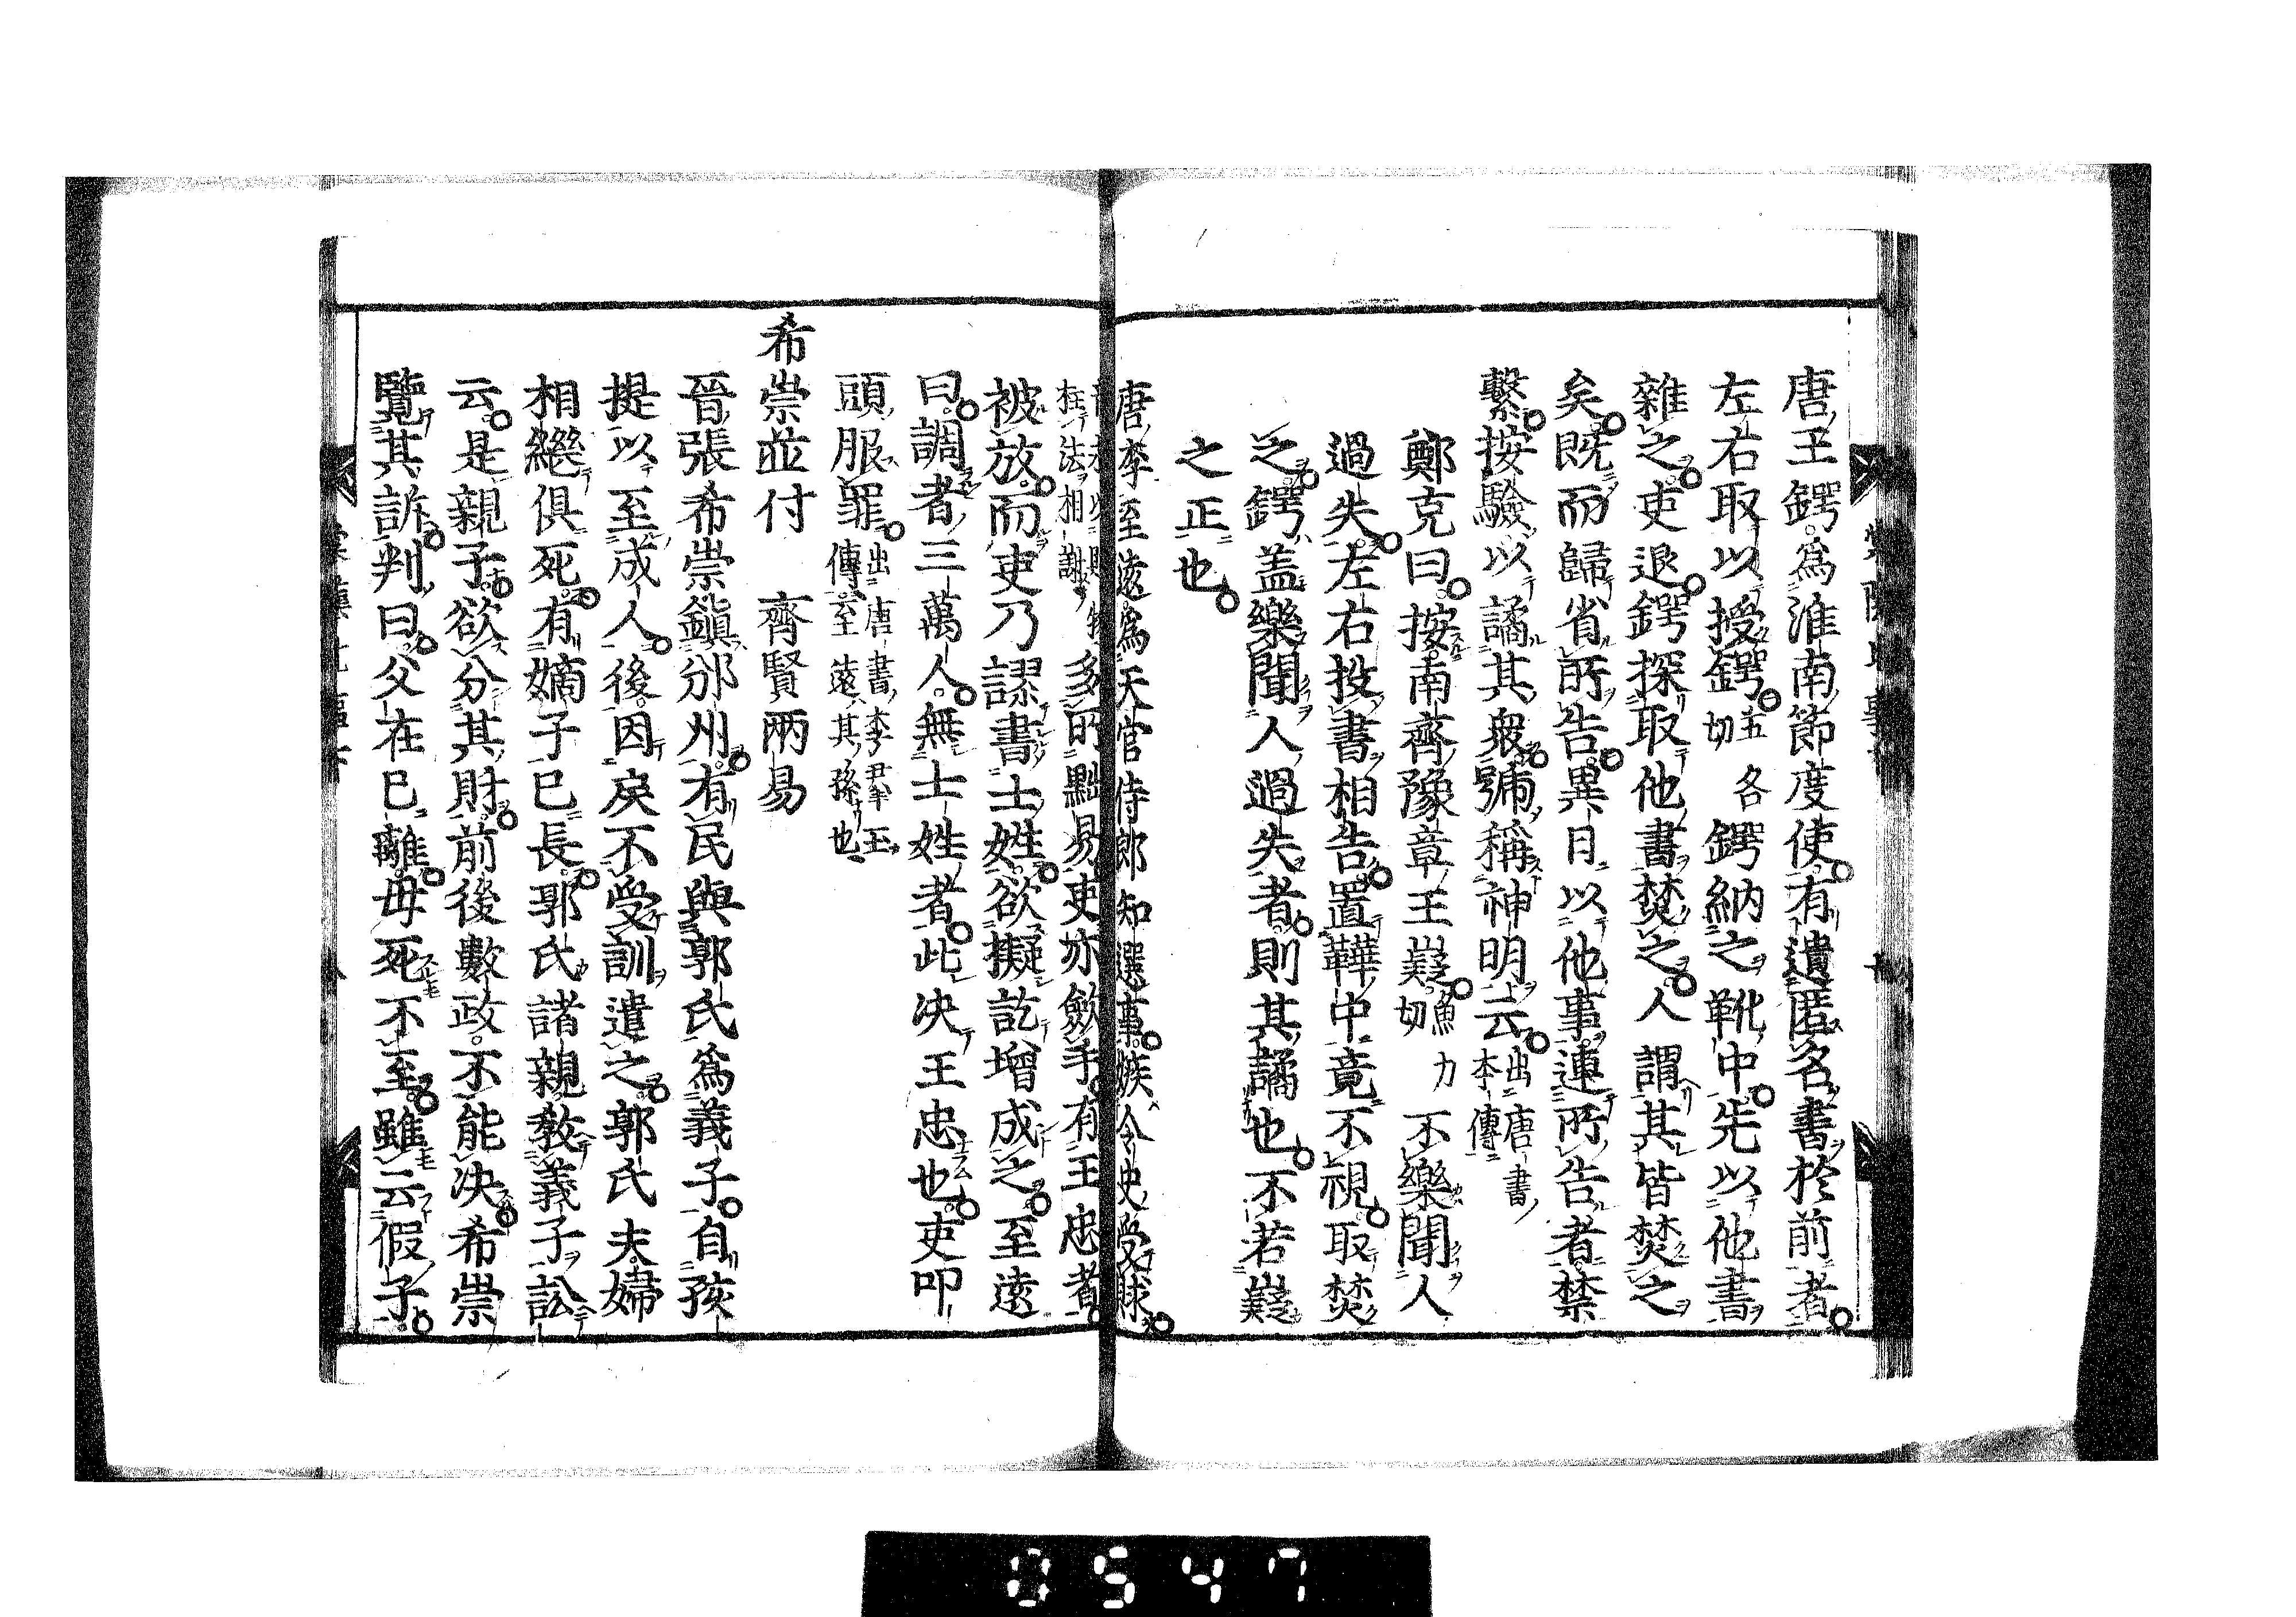 唐王鍔爲淮南節度使有遺匿名書於前者
左右取以授鍔五各切鍔納之靴中先以他書
雜之吏退鍔探取他書焚之人謂其皆焚之
矣既而歸省所告異日以他事連所告者禁
繫按驗以譎其衆號稱神明云出唐書李傳
鄭克曰按南齊豫章王嶷魚力切不樂聞人
過失左右投書相告置鞾中竟不視取焚
之鍔盖樂聞人過失者則其譎也不若嶷
之正也
唐李至遠爲天官侍郎知選事嫉令史受賕
枉法相謝
多所黜易吏亦斂手有王忠者
被放而吏乃謬書士姓欲擬訖增成之至遠
曰調者三萬人無士姓者此决王忠也吏叩
頭服罪出唐書李尹王傳至遠其孫也
希崇並付　齊賢兩易
晉張希崇鎭邠州有民與郭氏爲義子自孩
提以至成人後因戾不受訓遣之郭氏夫婦
相繼俱死有嫡子已長郭氏諸親教義子訟
云是親子欲分其財前後數政不能决希崇
覽其訴判曰父在已離母死不至雖云假子
0547